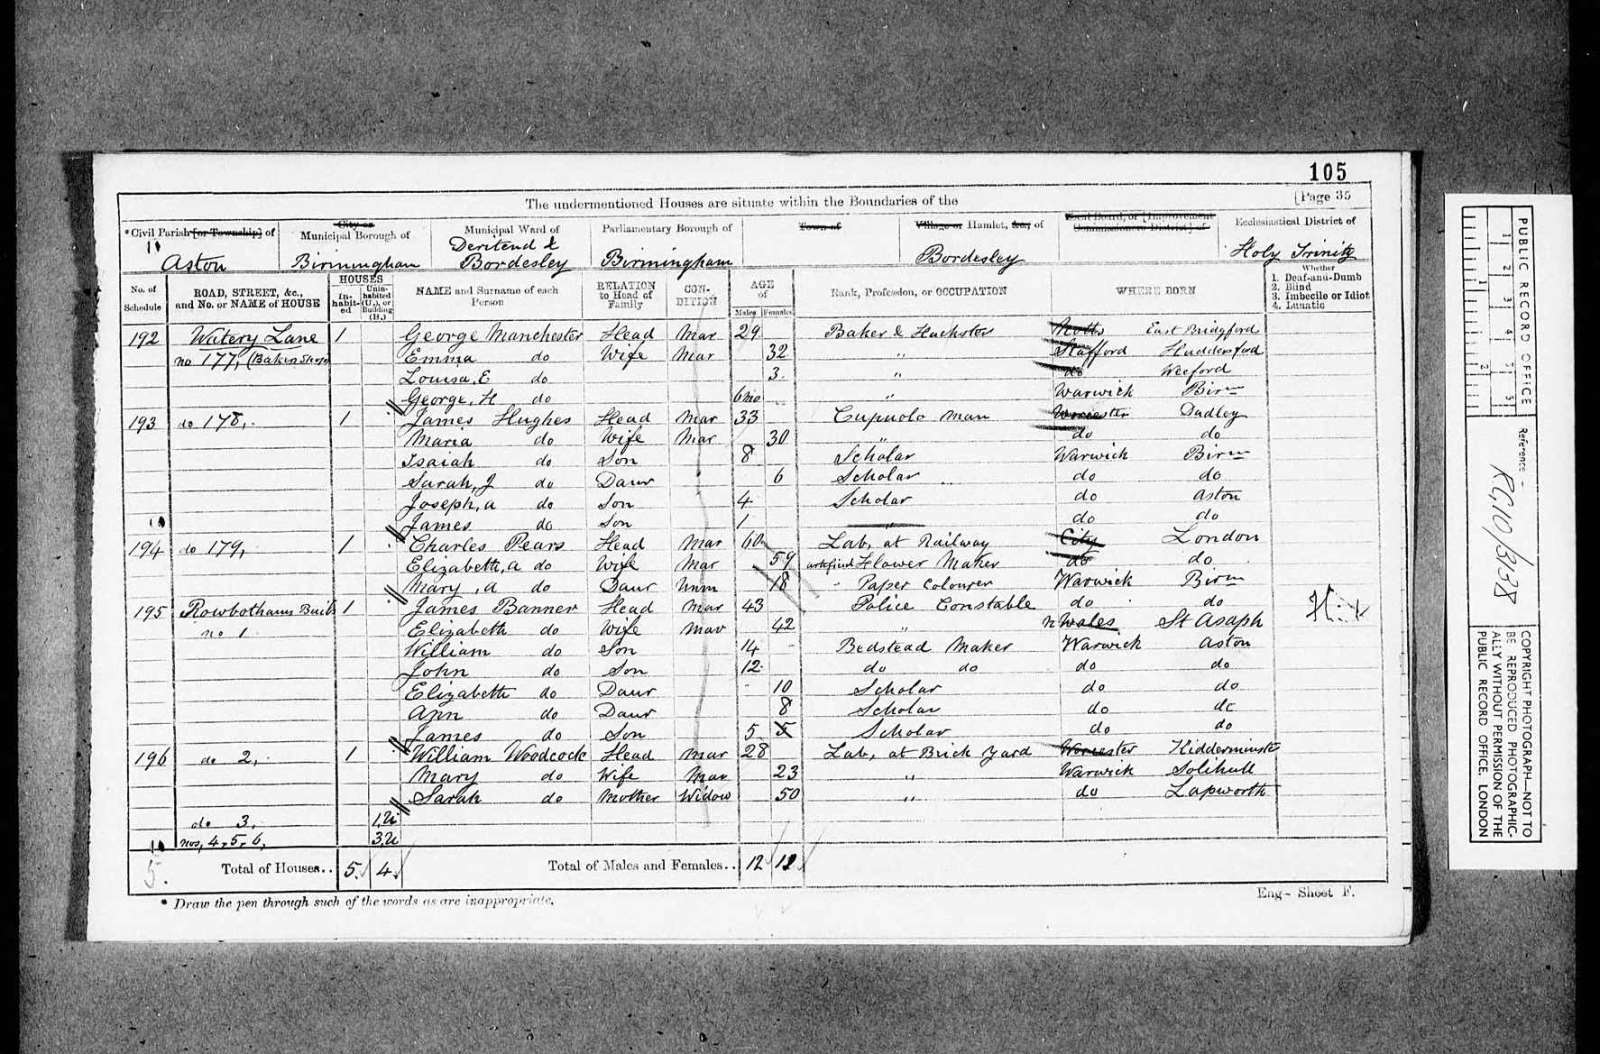 105
[Page 35
The undermentioned Houses are situate within the Boundaries of the
*Civil Parish [or Township] of
City or
Municipal Borough of
Municipal Ward of
Parliamentary Borough of
Town of
Village or Hamlet, &c., of
Local Board, or [Improvement
Commissioners District] of
Ecclesiastical District of
Aston
Birmingham
Deritend &
Bordesley
Birmingham
Bordesley
Holy Trinity
No. of
Schedule
ROAD, STREET, &c.,
and No. or NAME of HOUSE
HOUSES
In-
habit-
ed
Unin-
habited
(U.), or
Building
(B.)
NAME and Surname of each
Person
RELATION
to Head of
Family
CON-
DITION
AGE
of
Males Females
Rank, Profession, or OCCUPATION
WHERE BORN
Whether
1. Deaf-and-Dumb
2. Blind
3. Imbecile or Idiot
4. Lunatic
192 Watery Lane 1 George Manchester Head Mar 29 Baker & Huckster Notts East Bridgford
no 177, (Bakers Shop Emma do Wife Mar 32 " Stafford Huddesford
Louisa. E do 3. " do Weeford
George, H do 6mo " Warwick Birm
193 do 178, 1 James Hughes Head Mar 33 Cupuolo Man Worcester Dudley
Maria do Wife Mar 30 " do do
Isaiah do Son 8 Scholar Warwick Birm
Sarah, J do Daur 6 Scholar do do
Joseph, a do Son 4 Scholar do Aston
James do Son 1 " do do
194 do 179, 1 Charles Pears Head Mar 60 Lab, at Railway City London
Elizabeth, a do Wife Mar 59 artificial Flower Maker do do
Mary, a do Daur Unm 18 " Paper Colourer Warwick Birm
195 Rowbothams Buils 1 James Banner Head Mar 43 Police Constable do do
no 1 Elizabeth do Wife Mar 42 " n Wales St Asaph
William do Son 14 Bedstead Maker Warwick Aston
John do Son 12 do do do do
Elizabeth do Daur 10 Scholar do do
Ann do Daur 8 Scholar do do
James do Son 5 5 Scholar do do
196 do 2, 1 William Woodcock Head Mar 28 Lab, at Brick Yard Worcester Kidderminster
Mary do Wife Mar 23 " Warwick Solihull
Sarah do Mother Widow 50 " do Lapworth
do 3, 1,U
nos, 4, 5, 6, 3U
5.
Total of Houses.. 5. 4. Total of Males and Females.. 12 12
* Draw the pen through such of the words as are inappropriate.
Eng- Sheet F.
PUBLIC RECORD OFFICE
Reference:-
RG10/3138
COPYRIGHT PHOTOGRAPH-NOT TO
BE REPRODUCED PHOTOGRAPHIC-
ALLY WITHOUT PERMISSION OF THE
PUBLIC RECORD OFFICE, LONDON